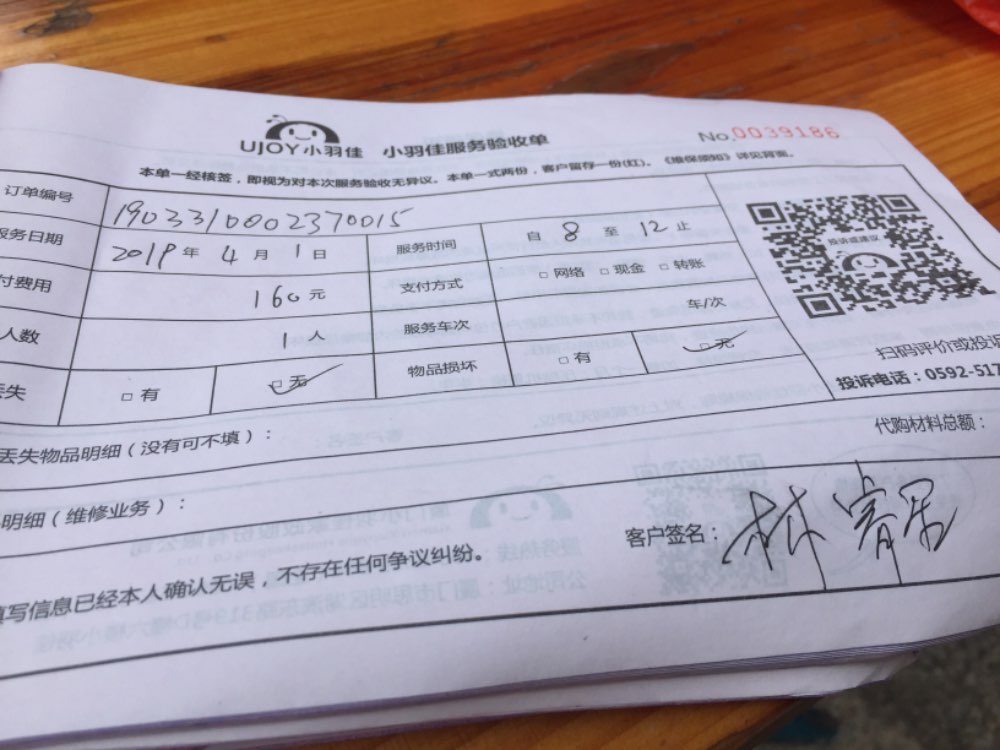 UJOY小羽佳 小羽佳服务验收单 No.0039186
本单一经核签，即视为对本次服务验收无异议。本单一式两份，客户留存一份(红)。《维保须知》详见背面。
订单编号 1903310002370015
服务日期 2019年4月1日 服务时间 自8至12止
付费用 160元 支付方式 □网络 □现金 □转账
人数 1人 服务车次 车/次
丢失 □有 □无 物品损坏 □有 □无
投诉或建议
扫码评价或投诉
投诉电话：0592-517
丢失物品明细（没有可不填）： 代购材料总额：
明细（维修业务）：
填写信息已经本人确认无误，不存在任何争议纠纷。 客户签名：林